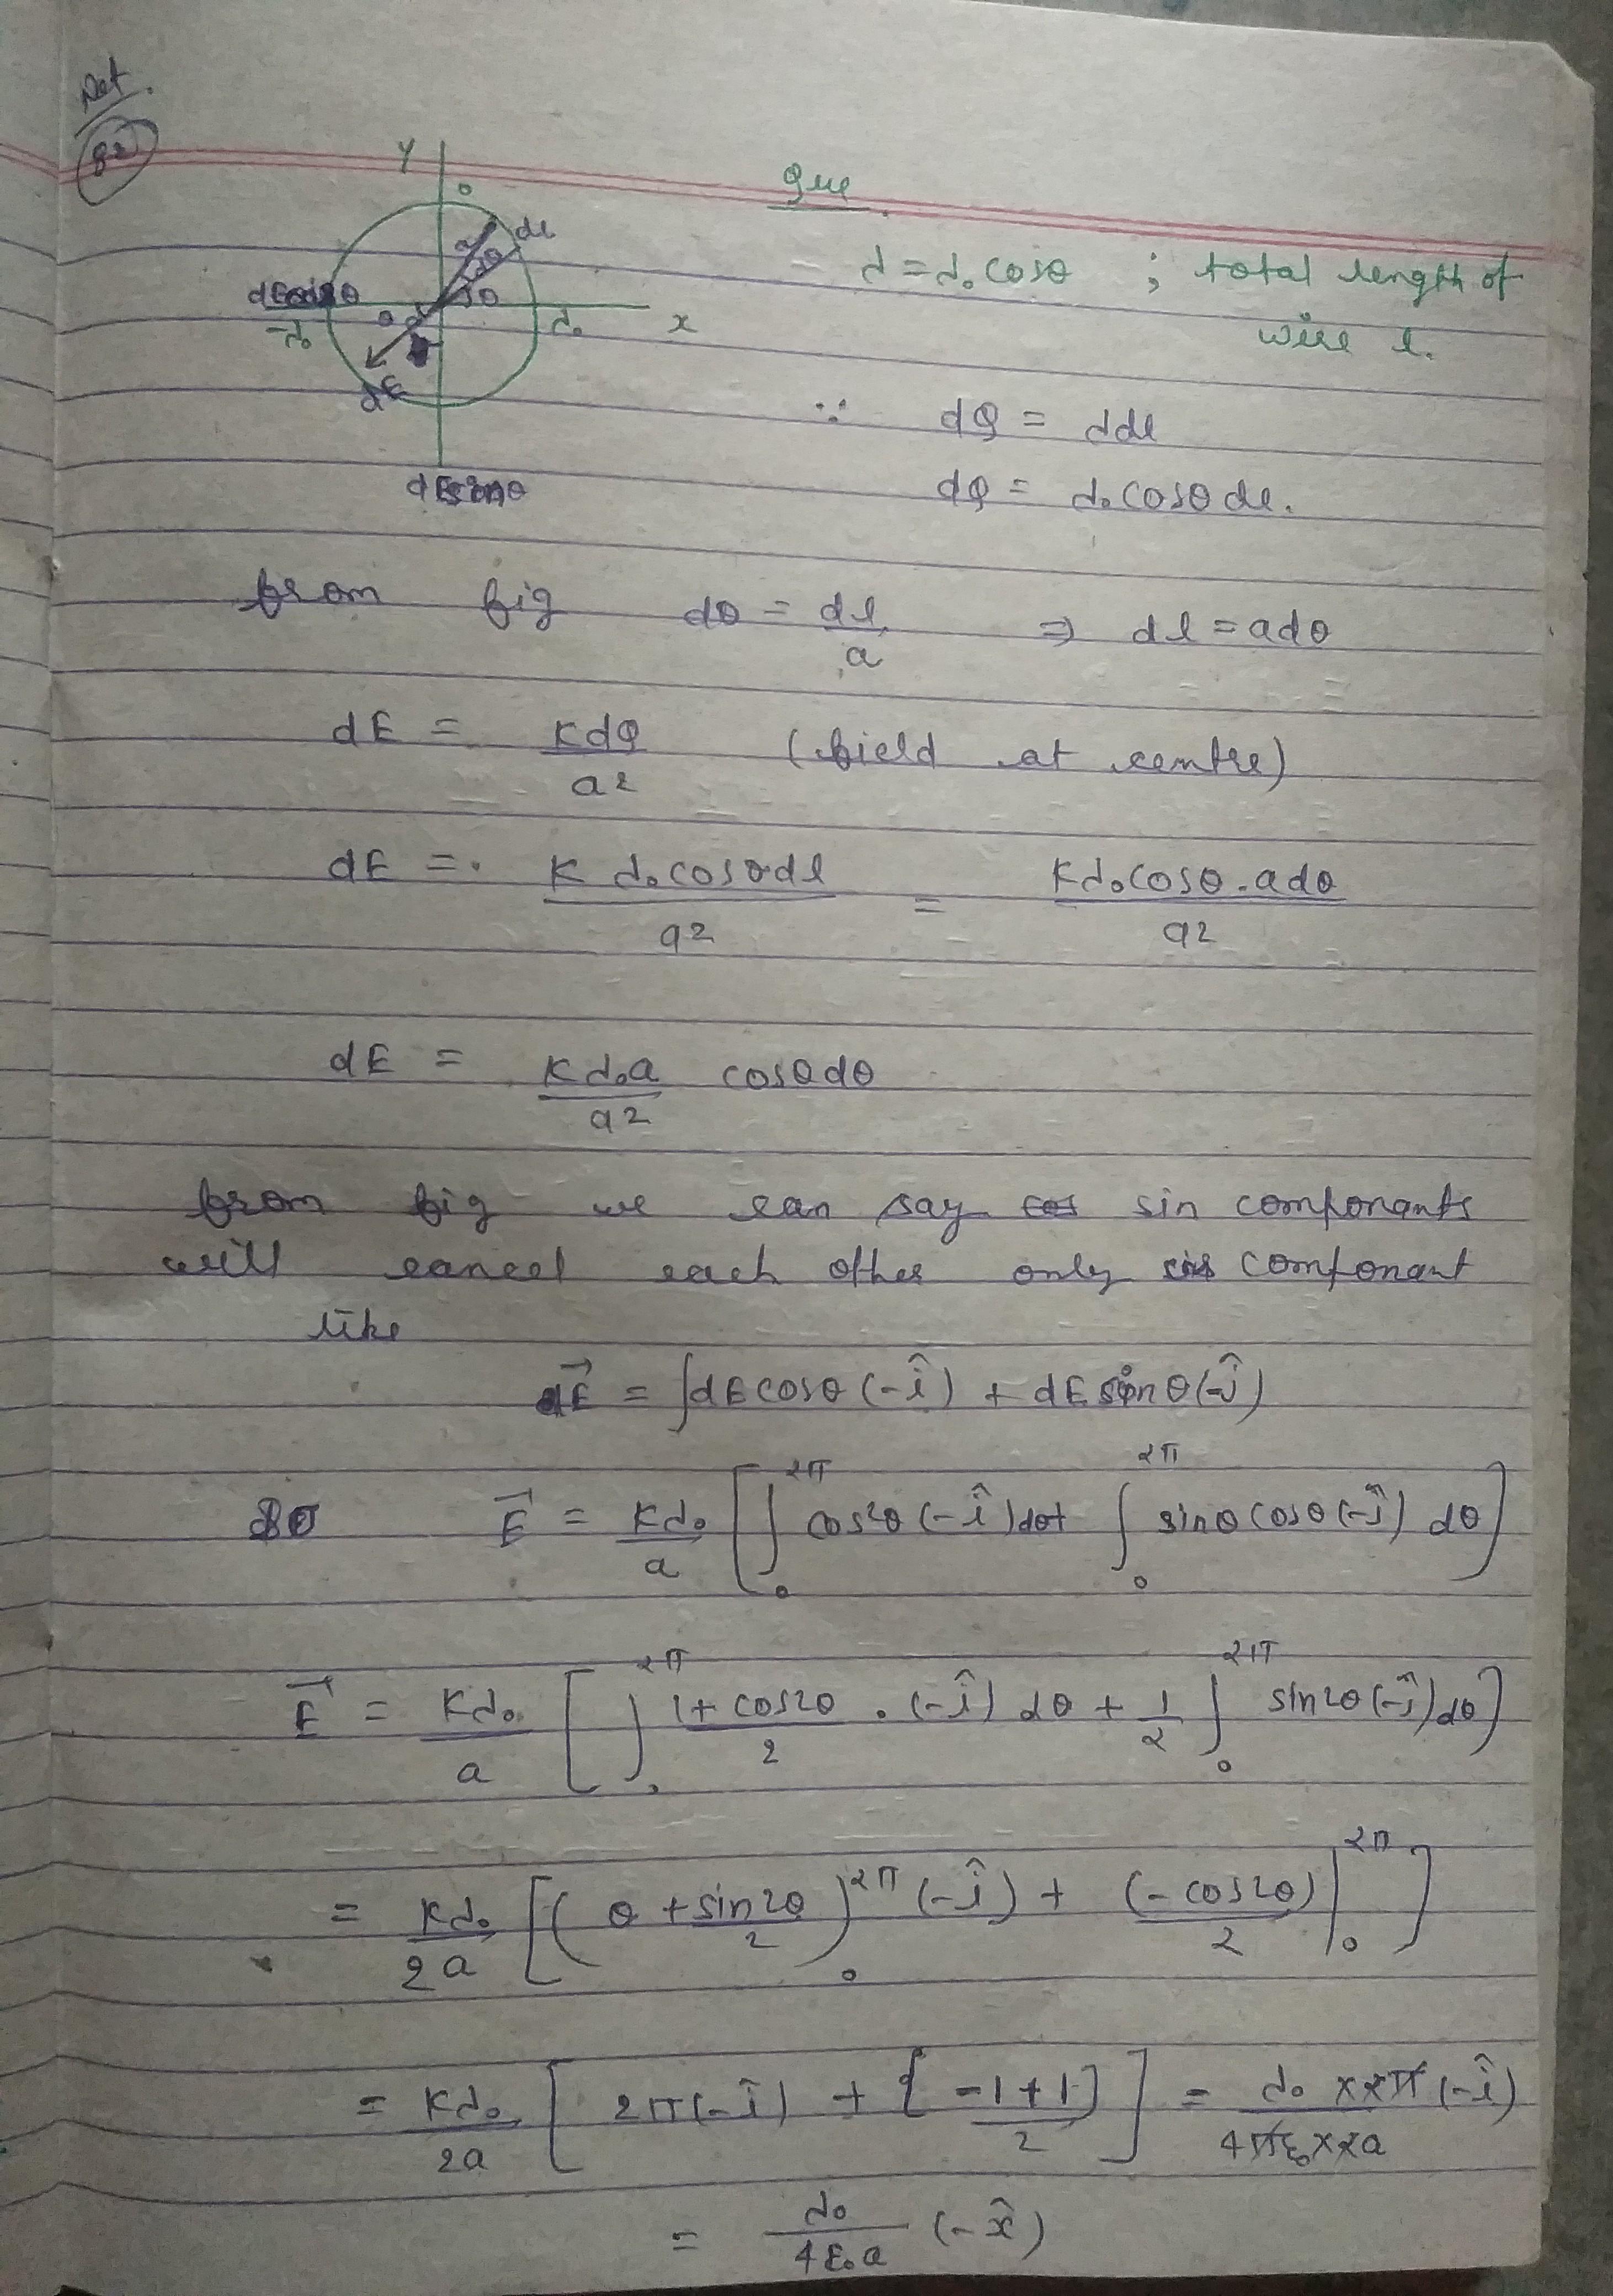 Net.
82
Que.
y
0
a
dl
dθ
θ
x
λ₀
-λ₀
θ
dE
dEsinθ
λ = λ₀ cosθ ; total length of
wire l.
∵ dQ = λdl
dQ = λ₀ cosθ dl.
from fig dθ = dl/a ⇒ dl = adθ
dE = KdQ/a² (field at centre)
dE = K λ₀ cosθ dl/a² = Kλ₀ cosθ . adθ/a²
dE = Kλ₀a/a² cosθdθ
from fig we can say cos sin componants
will cancel each other only cos componant
like
dE⃗ = ∫dE cosθ (-î) + dE sinθ (-ĵ)
So E⃗ = Kλ₀/a [∫₀^2π cos²θ (-î) dθ + ∫₀^2π sinθ cosθ (-ĵ) dθ]
E⃗ = Kλ₀/a [∫₀^2π 1+cos2θ/2 . (-î) dθ + 1/2 ∫₀^2π sin2θ (-ĵ) dθ]
= Kλ₀/2a [(θ + sin2θ/2)₀^2π (-î) + (-cos2θ)/2 |₀^2π]
= Kλ₀/2a [2π(-î) + {-1+1/2}] = λ₀ × 2π (-î)/4πε₀ × 2a
= λ₀/4ε₀a (-x̂)